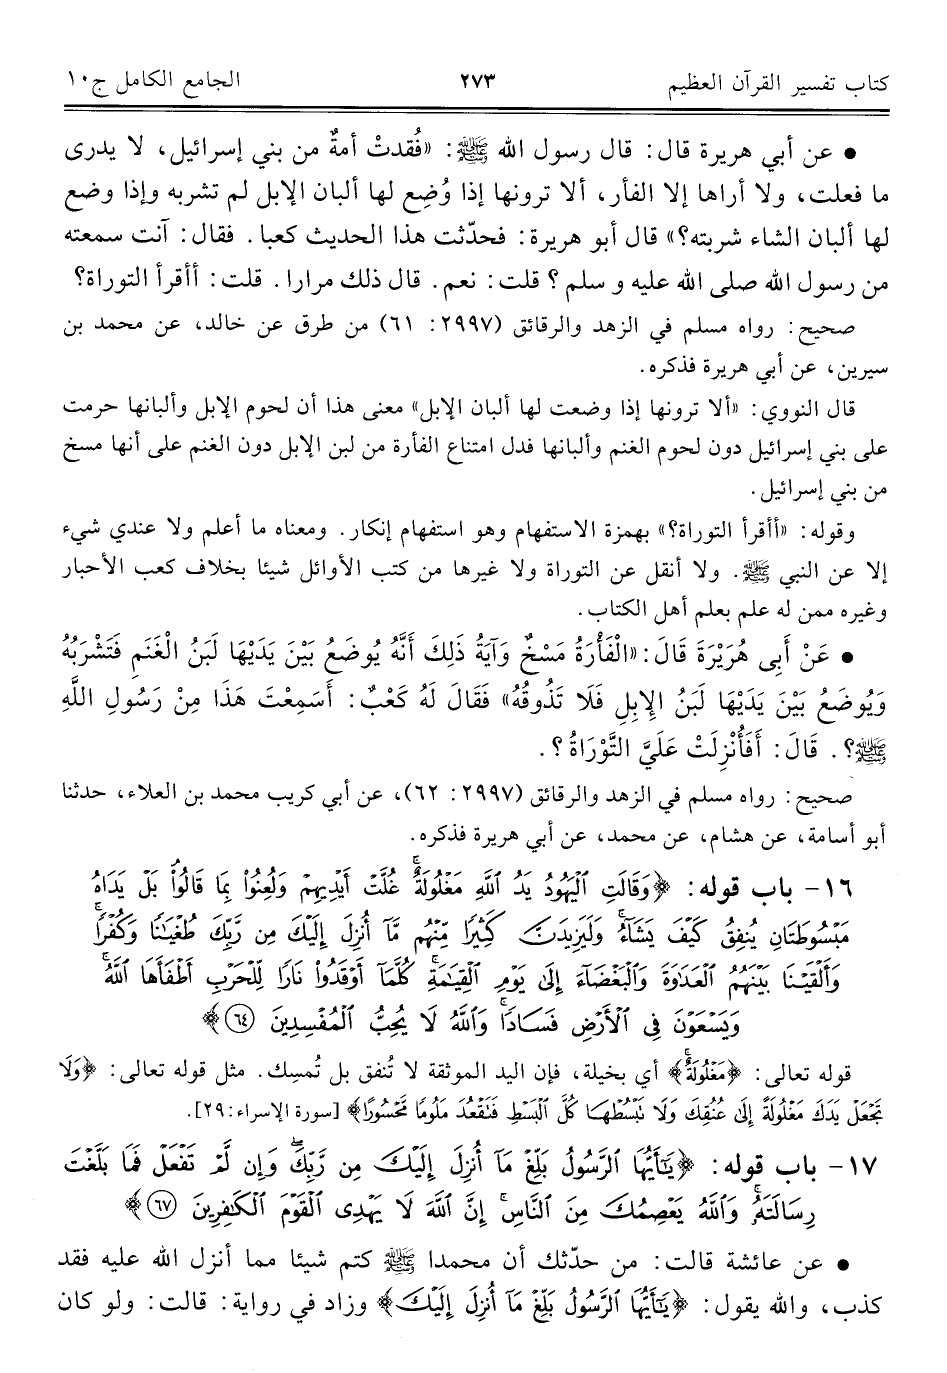 كتاب تفسير القرآن العظيم ٢٧٣ الجامع الكامل ج١٠
• عن أبي هريرة قال: قال رسول الله ﷺ: «فُقدتْ أمةٌ من بني إسرائيل، لا يدرى
ما فعلت، ولا أراها إلا الفأر، ألا ترونها إذا وُضِع لها ألبان الإبل لم تشربه وإذا وضع
لها ألبان الشاء شربته؟» قال أبو هريرة: فحدّثت هذا الحديث كعبا. فقال: آنت سمعته
من رسول الله صلى الله عليه و سلم ؟ قلت: نعم. قال ذلك مرارا. قلت: أأقرأ التوراة؟
صحيح: رواه مسلم في الزهد والرقائق (٢٩٩٧: ٦١) من طرق عن خالد، عن محمد بن
سيرين، عن أبي هريرة فذكره.
قال النووي: «ألا ترونها إذا وضعت لها ألبان الإبل» معنى هذا أن لحوم الإبل وألبانها حرمت
على بني إسرائيل دون لحوم الغنم وألبانها فدل امتناع الفأرة من لبن الإبل دون الغنم على أنها مسخ
من بني إسرائيل.
وقوله: «أأقرأ التوراة؟» بهمزة الاستفهام وهو استفهام إنكار. ومعناه ما أعلم ولا عندي شيء
إلا عن النبي ﷺ. ولا أنقل عن التوراة ولا غيرها من كتب الأوائل شيئا بخلاف كعب الأحبار
وغيره ممن له علم بعلم أهل الكتاب.
• عَنْ أَبِى هُرَيْرَةَ قَالَ: «الْفَأْرَةُ مَسْخٌ وَآيَةُ ذَلِكَ أَنَّهُ يُوضَعُ بَيْنَ يَدَيْهَا لَبَنُ الْغَنَمِ فَتَشْرَبُهُ
وَيُوضَعُ بَيْنَ يَدَيْهَا لَبَنُ الإِبِلِ فَلَا تَذُوقُهُ» فَقَالَ لَهُ كَعْبٌ: أَسَمِعْتَ هَذَا مِنْ رَسُولِ اللَّهِ
ﷺ؟. قَالَ: أَفَأُنْزِلَتْ عَلَيَّ التَّوْرَاةُ ؟.
صحيح: رواه مسلم في الزهد والرقائق (٢٩٩٧: ٦٢)، عن أبي كريب محمد بن العلاء، حدثنا
أبو أسامة، عن هشام، عن محمد، عن أبي هريرة فذكره.
١٦- باب قوله: ﴿وَقَالَتِ ٱلْيَهُودُ يَدُ ٱللَّهِ مَغْلُولَةٌ ۚ غُلَّتْ أَيْدِيهِمْ وَلُعِنُوا۟ بِمَا قَالُوا۟ ۘ بَلْ يَدَاهُ
مَبْسُوطَتَانِ يُنفِقُ كَيْفَ يَشَآءُ ۚ وَلَيَزِيدَنَّ كَثِيرًا مِّنْهُم مَّآ أُنزِلَ إِلَيْكَ مِن رَّبِّكَ طُغْيَٰنًا وَكُفْرًا ۚ
وَأَلْقَيْنَا بَيْنَهُمُ ٱلْعَدَٰوَةَ وَٱلْبَغْضَآءَ إِلَىٰ يَوْمِ ٱلْقِيَٰمَةِ ۚ كُلَّمَآ أَوْقَدُوا۟ نَارًا لِّلْحَرْبِ أَطْفَأَهَا ٱللَّهُ ۚ
وَيَسْعَوْنَ فِى ٱلْأَرْضِ فَسَادًا ۚ وَٱللَّهُ لَا يُحِبُّ ٱلْمُفْسِدِينَ ٦٤﴾
قوله تعالى: ﴿مَغْلُولَةٌ ۚ﴾ أي بخيلة، فإن اليد الموثقة لا تُنفق بل تُمسِك. مثل قوله تعالى: ﴿وَلَا
تَجْعَلْ يَدَكَ مَغْلُولَةً إِلَىٰ عُنُقِكَ وَلَا تَبْسُطْهَا كُلَّ ٱلْبَسْطِ فَتَقْعُدَ مَلُومًا مَّحْسُورًا﴾ [سورة الإسراء: ٢٩].
١٧- باب قوله: ﴿يَٰٓأَيُّهَا ٱلرَّسُولُ بَلِّغْ مَآ أُنزِلَ إِلَيْكَ مِن رَّبِّكَ ۖ وَإِن لَّمْ تَفْعَلْ فَمَا بَلَّغْتَ
رِسَالَتَهُۥ ۚ وَٱللَّهُ يَعْصِمُكَ مِنَ ٱلنَّاسِ ۗ إِنَّ ٱللَّهَ لَا يَهْدِى ٱلْقَوْمَ ٱلْكَٰفِرِينَ ٦٧﴾
• عن عائشة قالت: من حدّثك أن محمدا ﷺ كتم شيئا مما أنزل الله عليه فقد
كذب، والله يقول: ﴿يَٰٓأَيُّهَا ٱلرَّسُولُ بَلِّغْ مَآ أُنزِلَ إِلَيْكَ﴾ وزاد في رواية: قالت: ولو كان